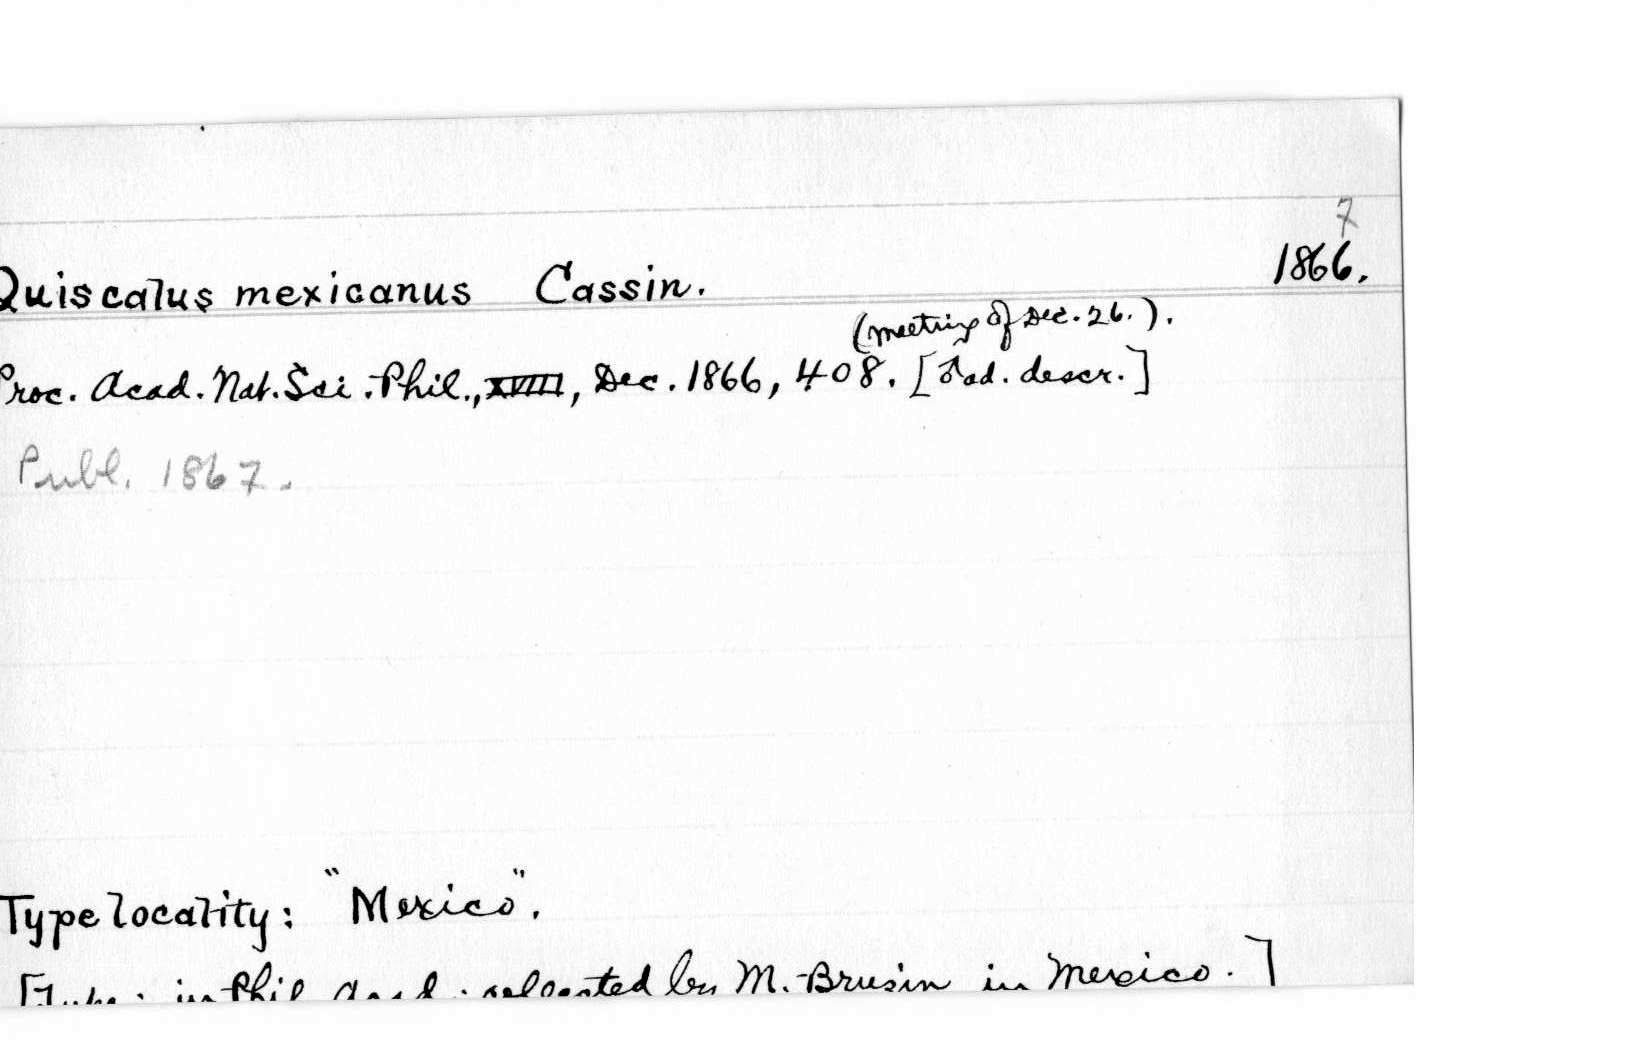 7
Quiscalus mexicanus Cassin. 1866.
(meeting of Dec. 26.).
Proc. Acad. Nat. Sci. Phil., Dec. 1866, 408. [♂ ad. descr.]
Publ. 1867.
Type locality: "Mexico".
[Type: in Phil. Acad. collected by M. in Mexico.]